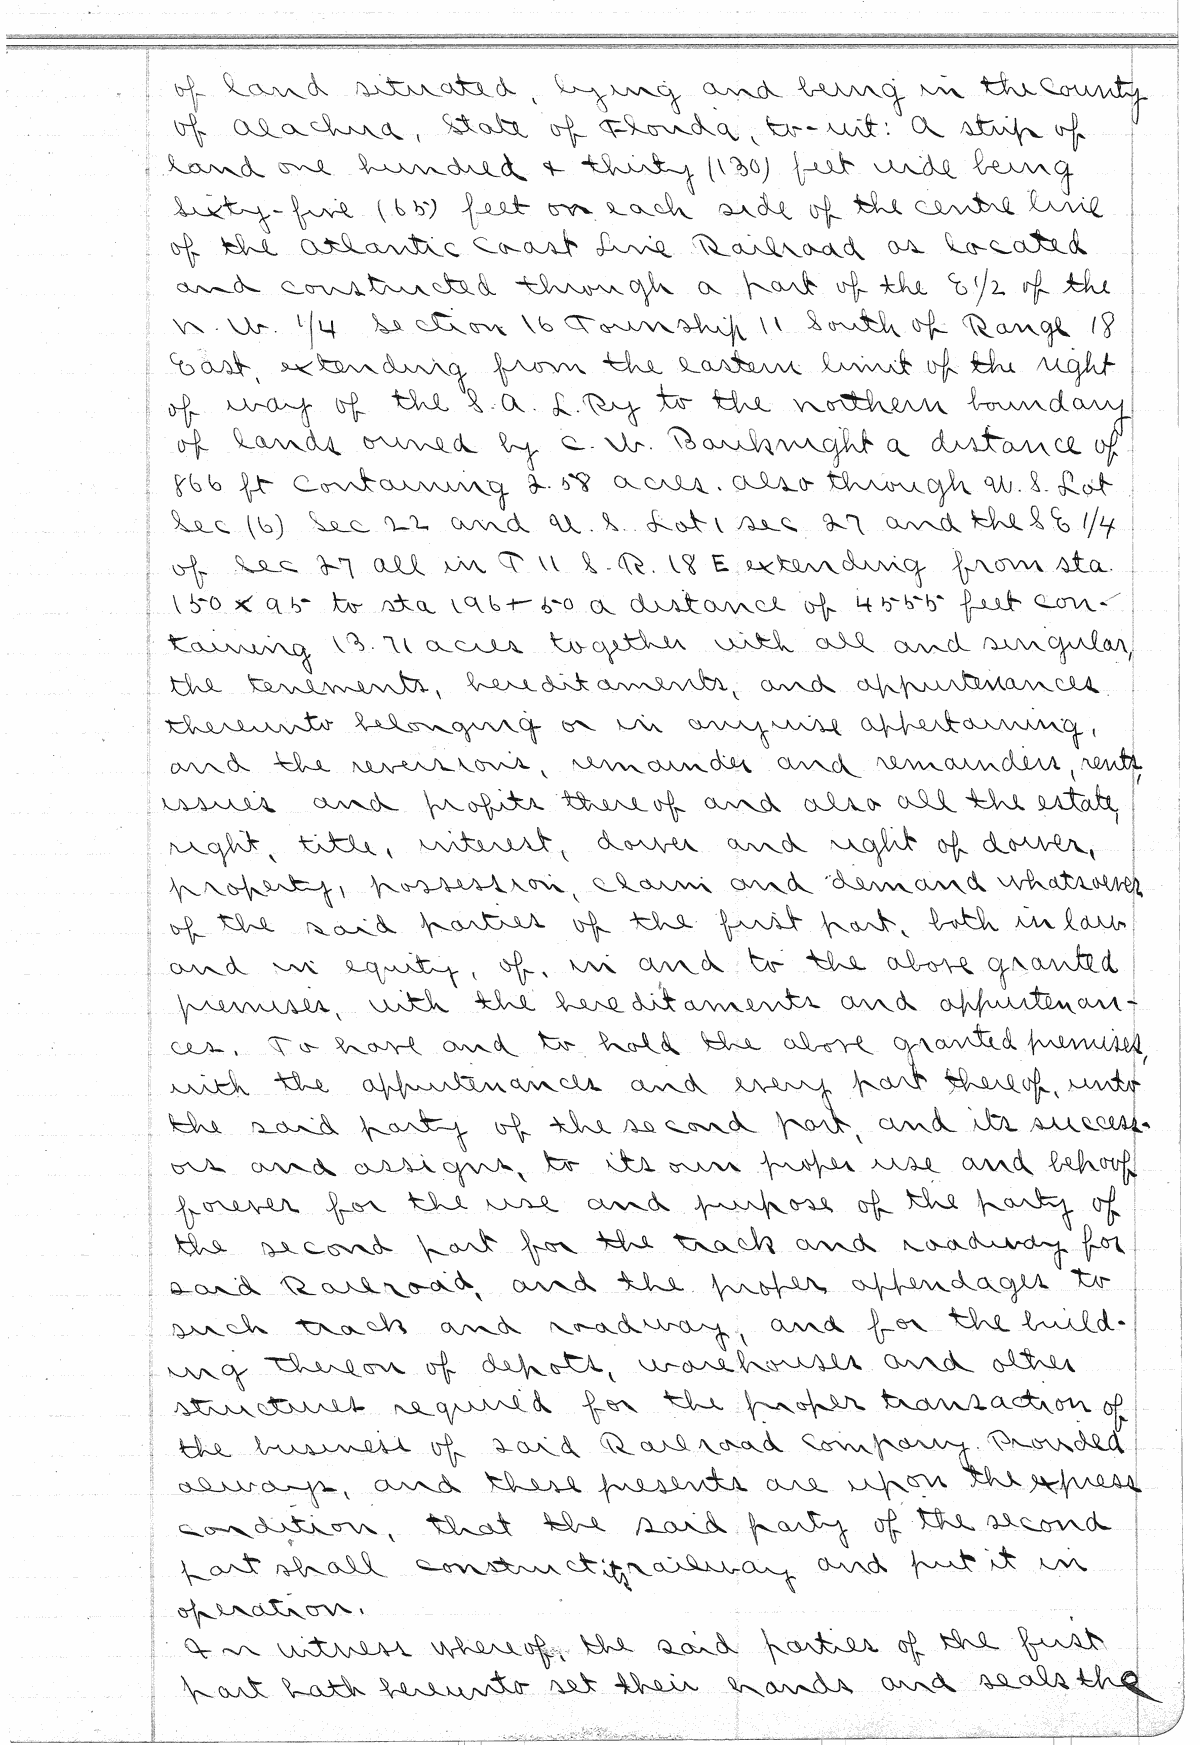 of land situated, lying and being in the County
of Alachua, State of Florida, to-wit: A strip of
land one hundred & thirty (130) feet wide being
Sixty-five (65) feet on each side of the centre line
of the Atlantic Coast Line Railroad as located
and constructed through a part of the E 1/2 of the
N. W. 1/4 Section 16 Township 11 South of Range 18
East, extending from the eastern limit of the right
of way of the S. A. L. Ry to the northern boundary
of lands owned by C. W. Bauknight a distance of
866 ft containing 2.58 acres. also through U. S. Lot
Sec (6) Sec 22 and U. S. Lot 1 sec 27 and the S E 1/4
of Sec 27 all in T 11 S. R. 18 E extending from sta.
150 x 95 to sta 196+50 a distance of 4555 feet con-
taining 13.71 acres together with all and singular,
the tenements, hereditaments, and appurtenances
thereunto belonging or in anywise appertaining,
and the reversions, remainder and remainders, rents,
issues and profits thereof and also all the estate,
right, title, interest, dower and right of dower,
property, possession, claim and demand whatsoever
of the said parties of the first part, both in law
and in equity, of, in and to the above granted
premises, with the hereditaments and appurtenan-
ces. To have and to hold the above granted premises,
with the appurtenances and every part thereof, unto
the said party of the second part, and its success-
ors and assigns, to its own proper use and behoof
forever for the use and purpose of the party of
the second part for the track and roadway for
said Railroad, and the proper appendages to
such track and roadway, and for the build-
ing thereon of depots, warehouses and other
structures required for the proper transaction of
the business of said Railroad Company. Provided
always, and these presents are upon the express
condition, that the said party of the second
part shall construct railway and put it in
operation.
In witness whereof, the said parties of the first
part hath hereunto set their hands and seals the